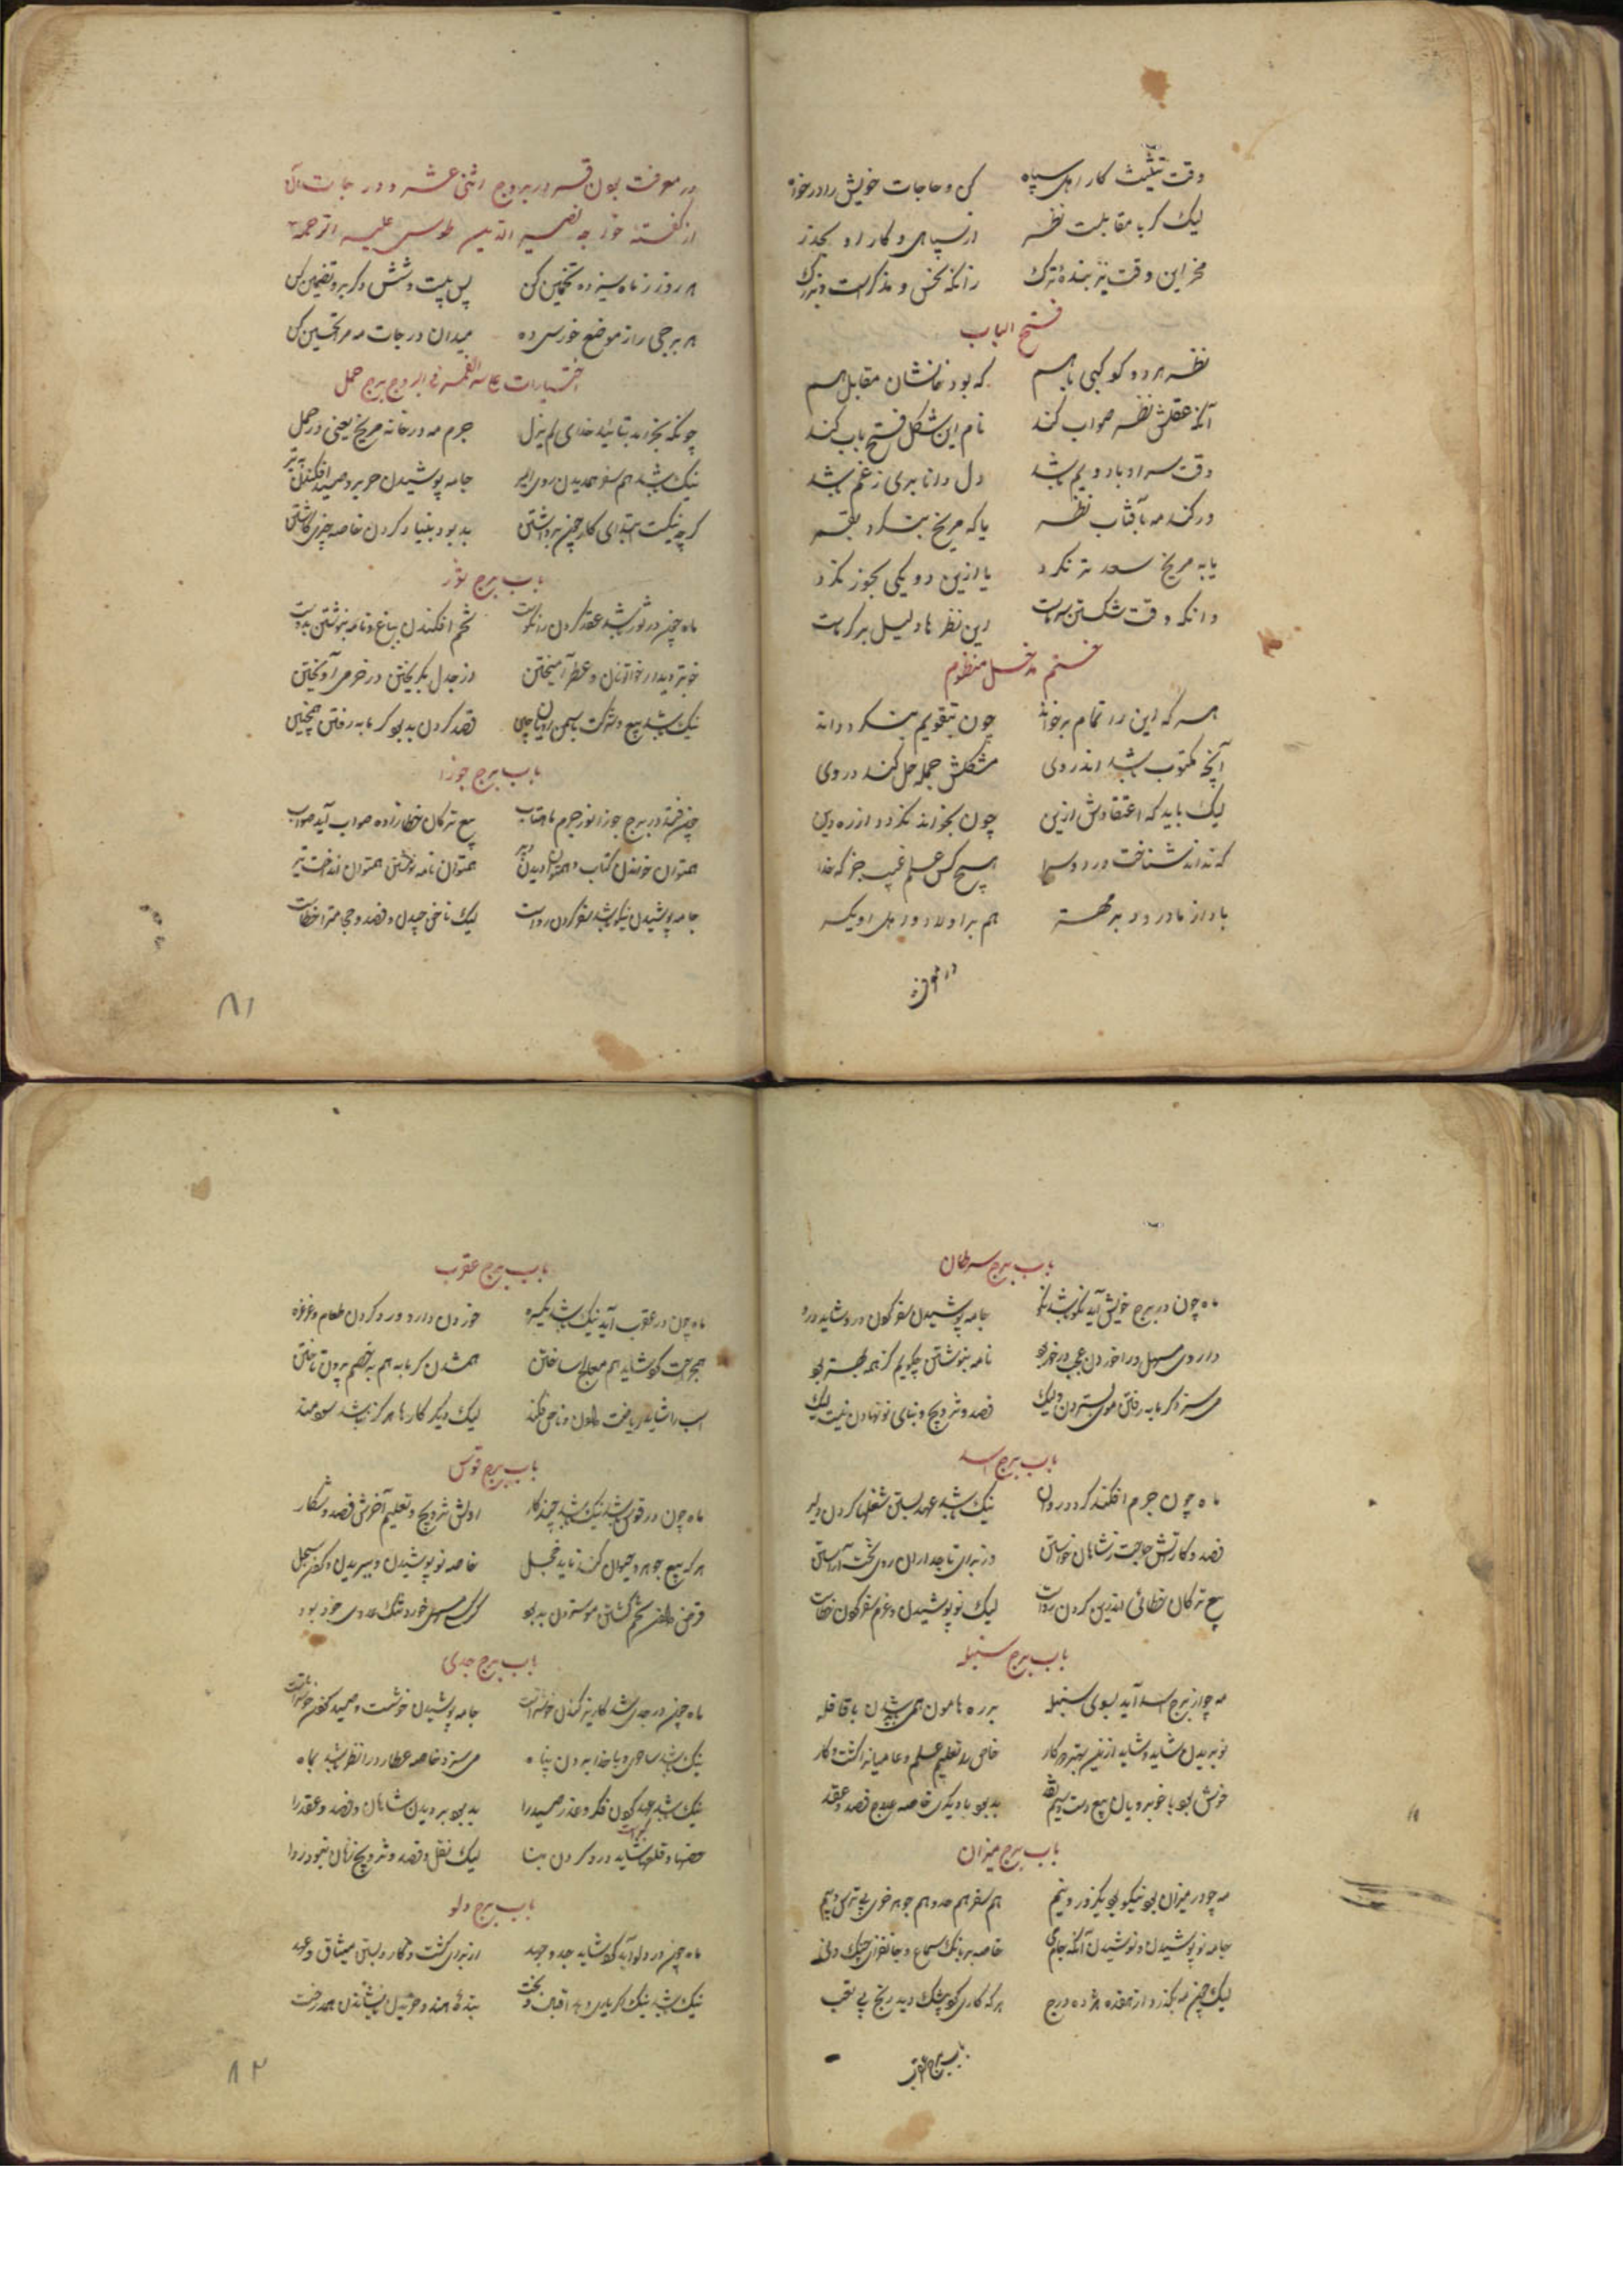 وقت تثلیث کار اهل سپاه کن و حاجات خویش را در خواه
لیک گر با مقابلت نظر از سپاهی و کار او بگذر
مخر این وقت نیز بنده ترک زانکه نحس و مذکرست و بزرگ
فتح الباب
نظر هر دو کوکبی با هم که بود خانشان مقابل هم
آنکه عقلش نظر صواب کند نام این شکل فتح باب کند
وقت سرما و باد و یم باشد دل دانا بری ز غم باشد
ور کند مه بآفتاب نظر یا که مریخ بنگرد بقمر
یا به مریخ سعد تر نگرد یا ازین دو یکی بجوز نگرد
دانکه وقت شکستن سرماست این نظرها دلیل بر گرماست
ختم مدخل منظوم
هر که این را تمام برخواند چون بتقویم بنگرد داند
آنچه مکتوب باشد اندر وی مشکلش جمله حل کند در وی
لیک باید که اعتقادش ازین چون بخواند نگردد از ره دین
که نداند شناخت در دو سرا هیچ کس علم غیب جز که خدا
باد از مادر و پدر بهتر هم بر اولاد و اهل او یکسر
در معرفت
در معرفت بودن قمر در بروج اثنی عشر و درجات آن
از گفته خواجه نصیر الدین طوسی علیه الرحمه
هر روز ز ماه سیزده تخمین کن پس بیست و شش دگر برو تضمین کن
هر برجی را ز موضع خورسی ده میدان درجات مه مرا تحسین کن
اختیارات القمر فی البروج برج حمل
چونکه بخرامد بتائید خدای لم یزل جرم مه در خانه مریخ یعنی در حمل
نیک باشد هم سفر هم دیدن روی امیر جامه پوشیدن حریر و صید افکندن به تیر
گرچه نیکست ابتدای کار چون برداشتن بد بود بنیاد کردن خاصه چیزی کاشتن
باب برج ثور
ماه چون در ثور باشد عقد کردن را نکوست تخم افکندن بباغ و نامه بنوشتن بدوست
خوبتر دیدار خواتونان و عطر آمیختن از جدل بگریختن در خرمی آویختن
نیک باشد بیع و شرکت با سمن رویان چین فصد کردن بد بود گرمابه رفتن همچنین
باب برج جوزا
چون فتد در برج جوزا نور جرم ماهتاب بیع ترکان خطا زاده صواب آید صواب
همتوان خواندن کتاب و همتوان دیدن دبیر همتوان نامه نوشتن همتوان انداخت تیر
جامه پوشیدن نیکو باشد سفر کردن رواست لیک ناخن چیدن و فصد و حجامترا خطاست
۸۱
باب برج سرطان
ماه چون در برج خویش آید نکو باشد نکو جامه پوشیدن سفر کردن درو شاید درو
داروی مسهل درا خوردن عجب درخور بود نامه بنوشتن چگویم کز همه بهتر بود
می سزد گرمابه رفتن موی بستردن ولیک فصد و تزویج و بنای نو نهادن نیست نیک
باب برج اسد
ماه چون جرم افکند گردد روان نیک باشد عهد بستن شغلها کردن
فصد و کار آتش حاجت ز شاهان خواستن از برای تاجداران روی تخت آراستن
بیع ترکان خطائی اندرین کردن رواست لیک نو پوشیدن و عزم سفر کردن خطاست
باب برج سنبله
مه چو از برج اسد آید بسوی سنبله بر ره هامون همی باشیدن با قافله
نو بریدن شاید و شاید ازین بهتر هر کار خاص را تعلیم علم و عامیانرا کشت و کار
خوش بود با خوبرویان بیع دست و سیم نقد بد بود با دیگران خاصه علاج فصد و عقد
باب برج میزان
مه چو در میزان بود نیکو بود یکروز و نیم هم سفر هم عدو هم جوهر خری بی ترس و بیم
جامه نو پوشیدن و نوشیدن آنگه جام می خاصه بر بانگ سماع و جانفزای چنگ و نی
لیک چون مه بگذرد از هفده و هژده درج هر که کاری کرد بیشک دید رنج بی
باب برج عقرب
باب برج عقرب
ماه چون در عقرب آید نیک باشد یکسره خوردن دارو و رد کردن طعام و غرغره
هم جراحت کو شاید هم معالج ساختن هم شدن گرمابه هم بر خصم بیرون تاختن
اسب را شاید ریاضت دادن و ناخن فکند لیک دیگر کارها هرگز نباشد سودمند
باب برج قوس
ماه چون در قوس باشد نیک باشد چند کار اولش تزویج و تعلیم آخرش فصد و شکار
هر که بیع جوهر و حیوان کند ناید خجل خاصه نو پوشیدن و ببریدن و کردن سجل
قرض دادن تخم کشتن مو ستردن بد بود گر کسی مسهل خورد بیشک عدوی خود بود
باب برج جدی
ماه چون در جدی باشد کاریز کندن خوشتر است جامه پوشیدن خوشست و صید کردن خوشتر است
نیک باشد ساحری و با خدا بردن پناه می سزد خاصه عطارد را نظر باشد بماه
نیک باشد عهد کردن فکر و غدر صید را بد بود بر دیدن شاهان و فصد و عقد را
حفرها و قلعها شاید درو کردن بنا لیک نقل و فصد و تزویج زنان نبود روا
باب برج دلو
ماه چون در دلو آید کرد شاید جد و جهد از برای کشت و کار و بستن میثاق و عهد
نیک باشد نیک اگر یاری دهد اقبال و بخت بندۀ هندو خریدن نشاندن هم درخت
۸۲